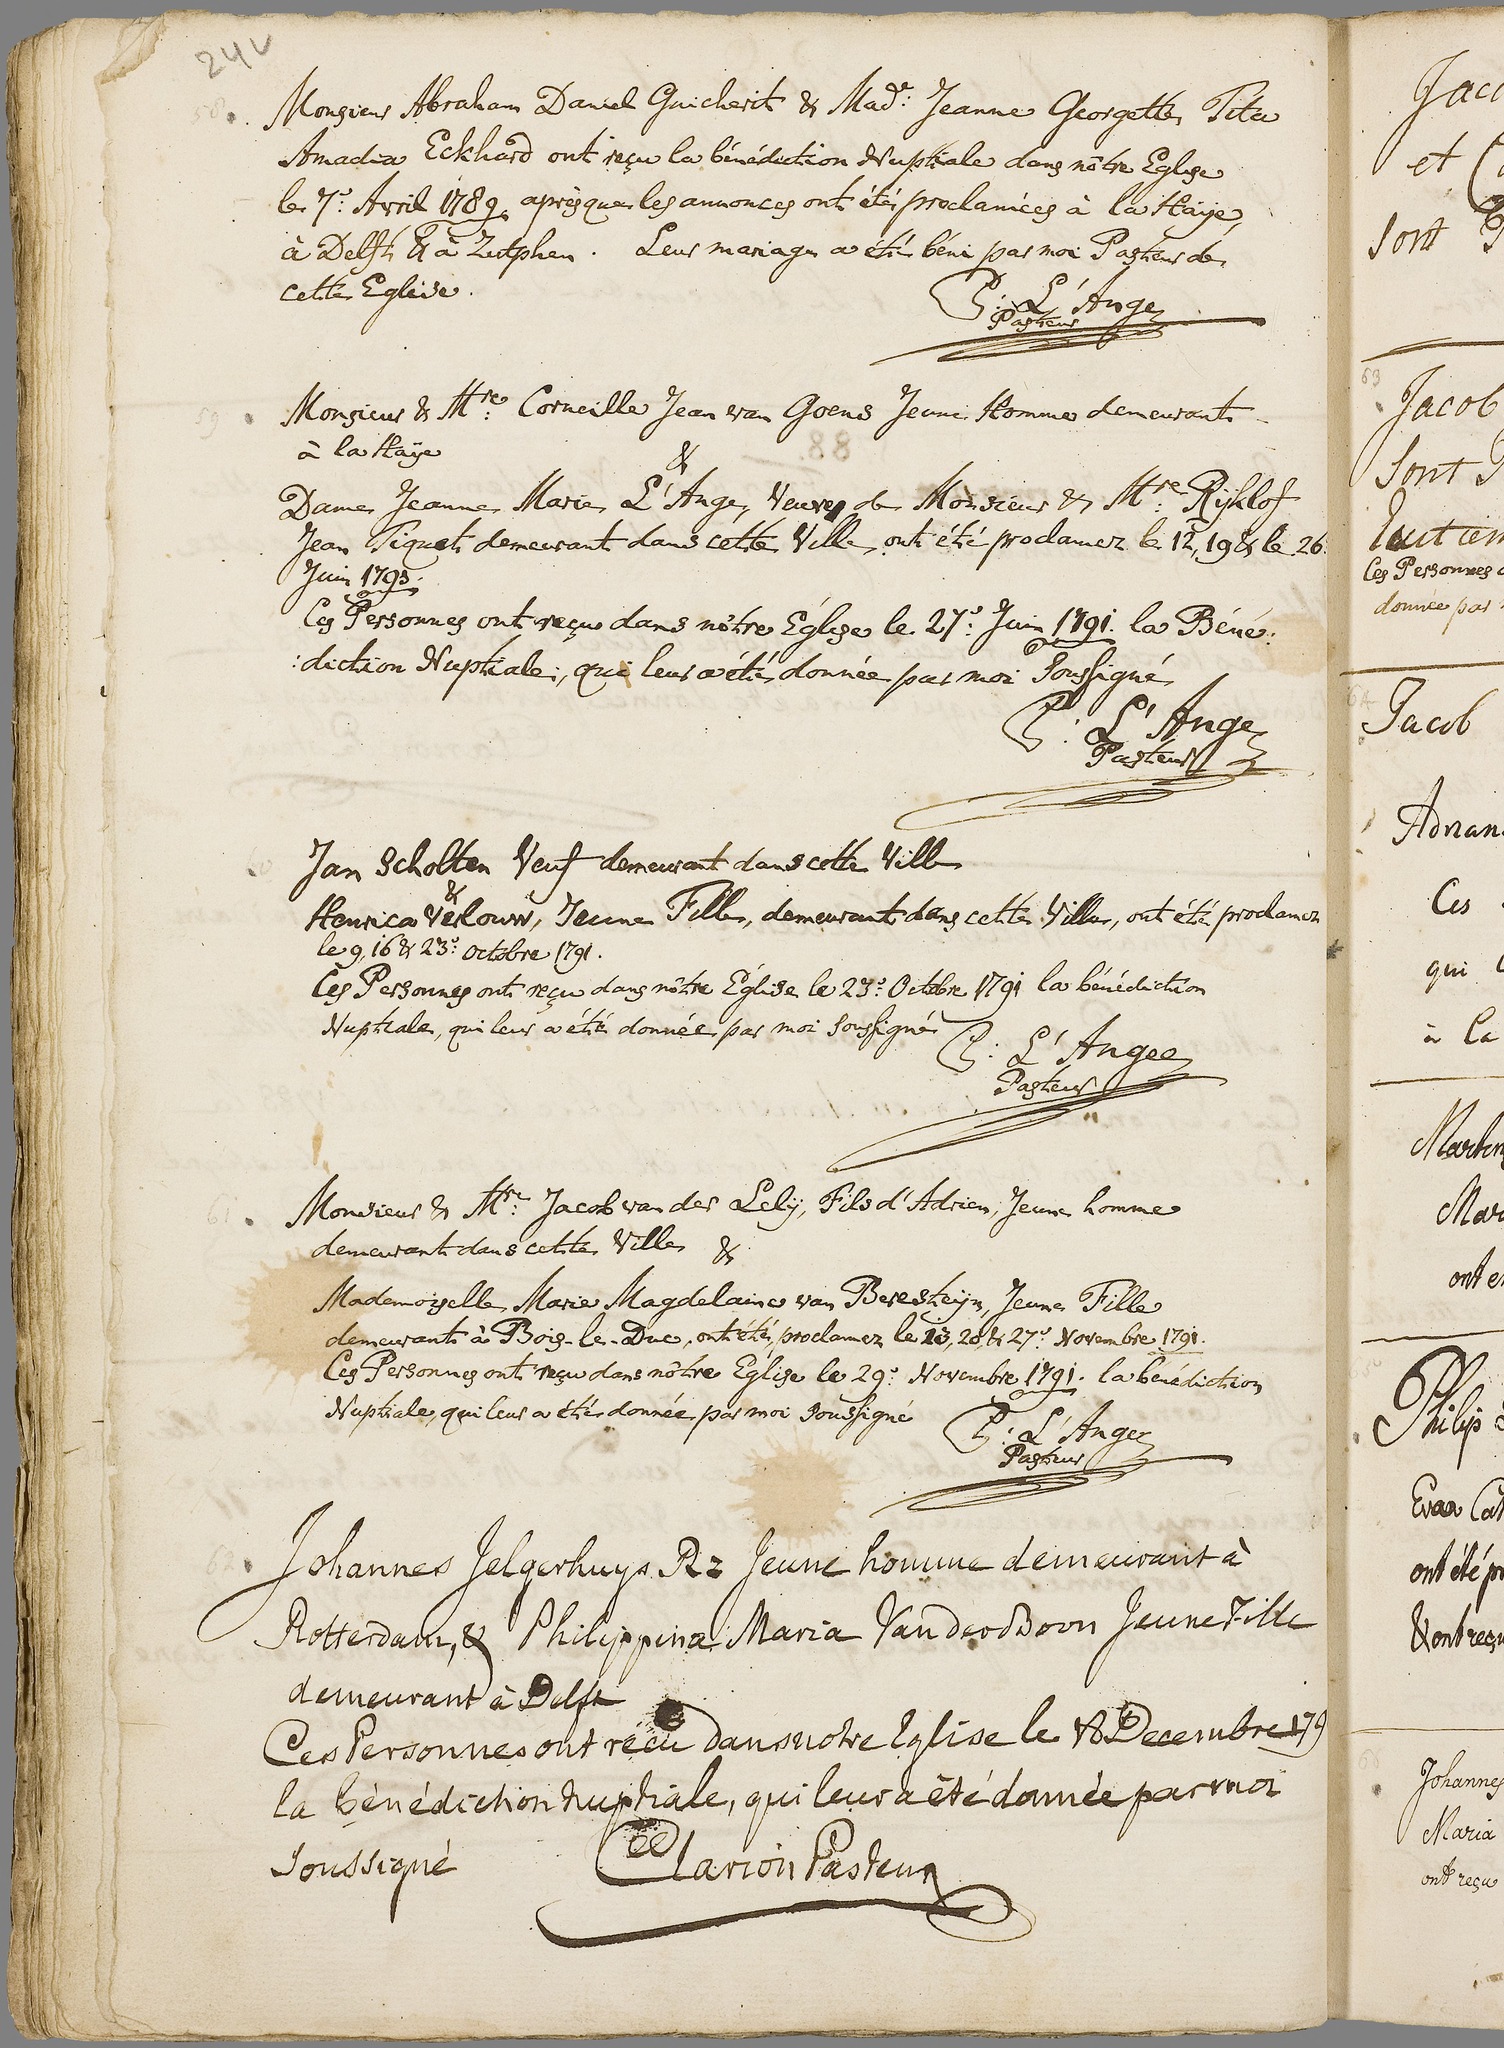 24v
58.
Monsieur Abraham Daniel Guicherit & Made: Jeanne Georgette Tita
Amadia Eckhard ont reçu la bénédiction Nuptiale dans nôtre Eglise
le 7e: Avril 1789, après que les annonces ont étés proclamées à la Haÿe,
à Delft & à Zutphen. Leur mariage a été béni par moi Pasteur de
cette Eglise.
P: L'Ange
Pasteur
59
Monsieur & Mtre: Corneille Jean van Goens Jeune Homme demeurant
à la Haÿe
&
Dame Jeanne Marie L'Ange, Veuve de Monsieur & Mtre: Rijklof
Jean Piquet demeurant dans cette Ville, ont été proclamez le 12, 19 & le 26
Juin 1793.
Ces Personnes ont reçu dans nôtre Église le 27e: Juin 1791. la Béné:
:diction Nuptiale, qui leur a été donnée par moi Soussigné
P: L'Ange
Pasteur
60
Jan Scholten Veuf demeurant dans cette Ville
&
Henrica Verlouw, Jeune Fille, demeurant dans cette Ville, ont été proclamez
le 9, 16 & 23e: Octobre 1791.
Ces Personnes ont reçu dans nôtre Église le 23e: Octobre 1791 la bénédiction
Nuptiale, qui leur a été donnée par moi Soussigné
P: L'Ange
Pasteur
61
Monsieur & Mtre: Jacob van der Lelÿ, Fils d'Adrien, Jeune homme
demeurant dans cette Ville &
Mademoiselle Marie Magdelaine van Beresteijn, Jeune Fille
demeurant à Bois-le-Duc, ont été proclamez le 13, 20, & 27e: Novembre 1791.
Ces Personnes ont reçu dans nôtre Église le 29e: Novembre 1791. la bénédiction
Nuptiale, qui leur a été donnée par moi Soussigné
P: L'Ange
Pasteur
62
Johannes Jelgerhuys Rz Jeune homme demeurant à
Rotterdam, & Philippina Maria Van der Boon Jeune Fille
demeurant à Delft
Ces Personnes ont réçu dans notre Eglise le 18 Decembre 179
la bénédiction nuptiale, qui leur a été donnée par moi
Soussigné
Clarion Pasteur
et
sont
63
Jacob
sont
Ces Personnes
donnée par
64
Jacob
Adrian
Ces
qui
à la
Mar
ont e
Philip
Evaa Cat
ont été pr
& ont reçu
Johannes
Maria
ont reçu